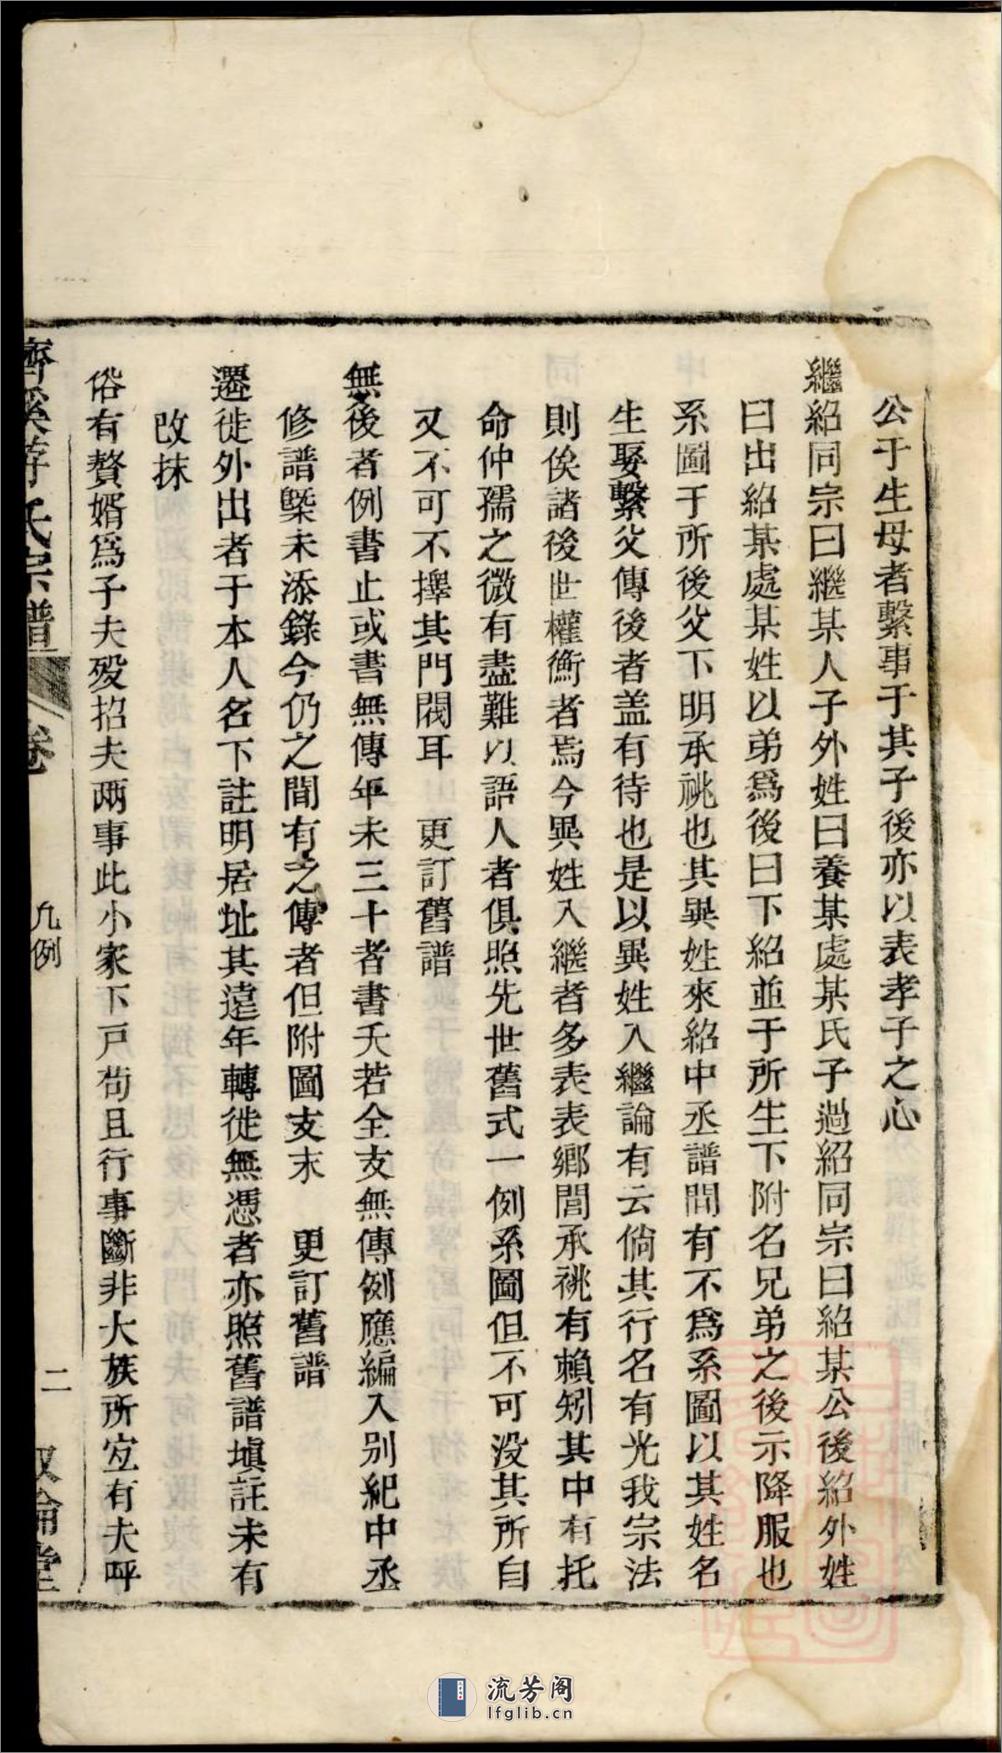 公于生母者繫事于其子後亦以表孝子之心
繼紹同宗曰繼某人子外姓曰養某處某氏子過紹同宗曰紹某公後紹外姓
曰出紹某處某姓以弟爲後曰下紹並于所生下附名兄弟之後示降服也
系圖于所後父下明承祧也其異姓來紹中丞譜間有不爲系圖以其姓名
生娶繫父傳後者盖有待也是以異姓入繼論有云倘其行名有光我宗法
則俟諸後世權衡者焉今異姓入繼者多表表鄉閭承祧有賴矧其中有托
命仲孺之微有盡難以語人者俱照先世舊式一例系圖但不可没其所自
又不可不擇其門閥耳　更訂舊譜
無後者例書止或書無傳年未三十者書夭若全支無傳例應編入別紀中丞
修譜槩未添錄今仍之間有之傳者但附圖支末　更訂舊譜
遷徙外出者于本人名下註明居址其遠年轉徙無憑者亦照舊譜塡註未有
改抹
俗有贅婿爲子夫殁招夫兩事此小家下戸苟且行事斷非大族所宜有夫呼
濟溪游氏宗譜
卷
凡例
二
叙倫堂
流芳阁
lfglib.cn